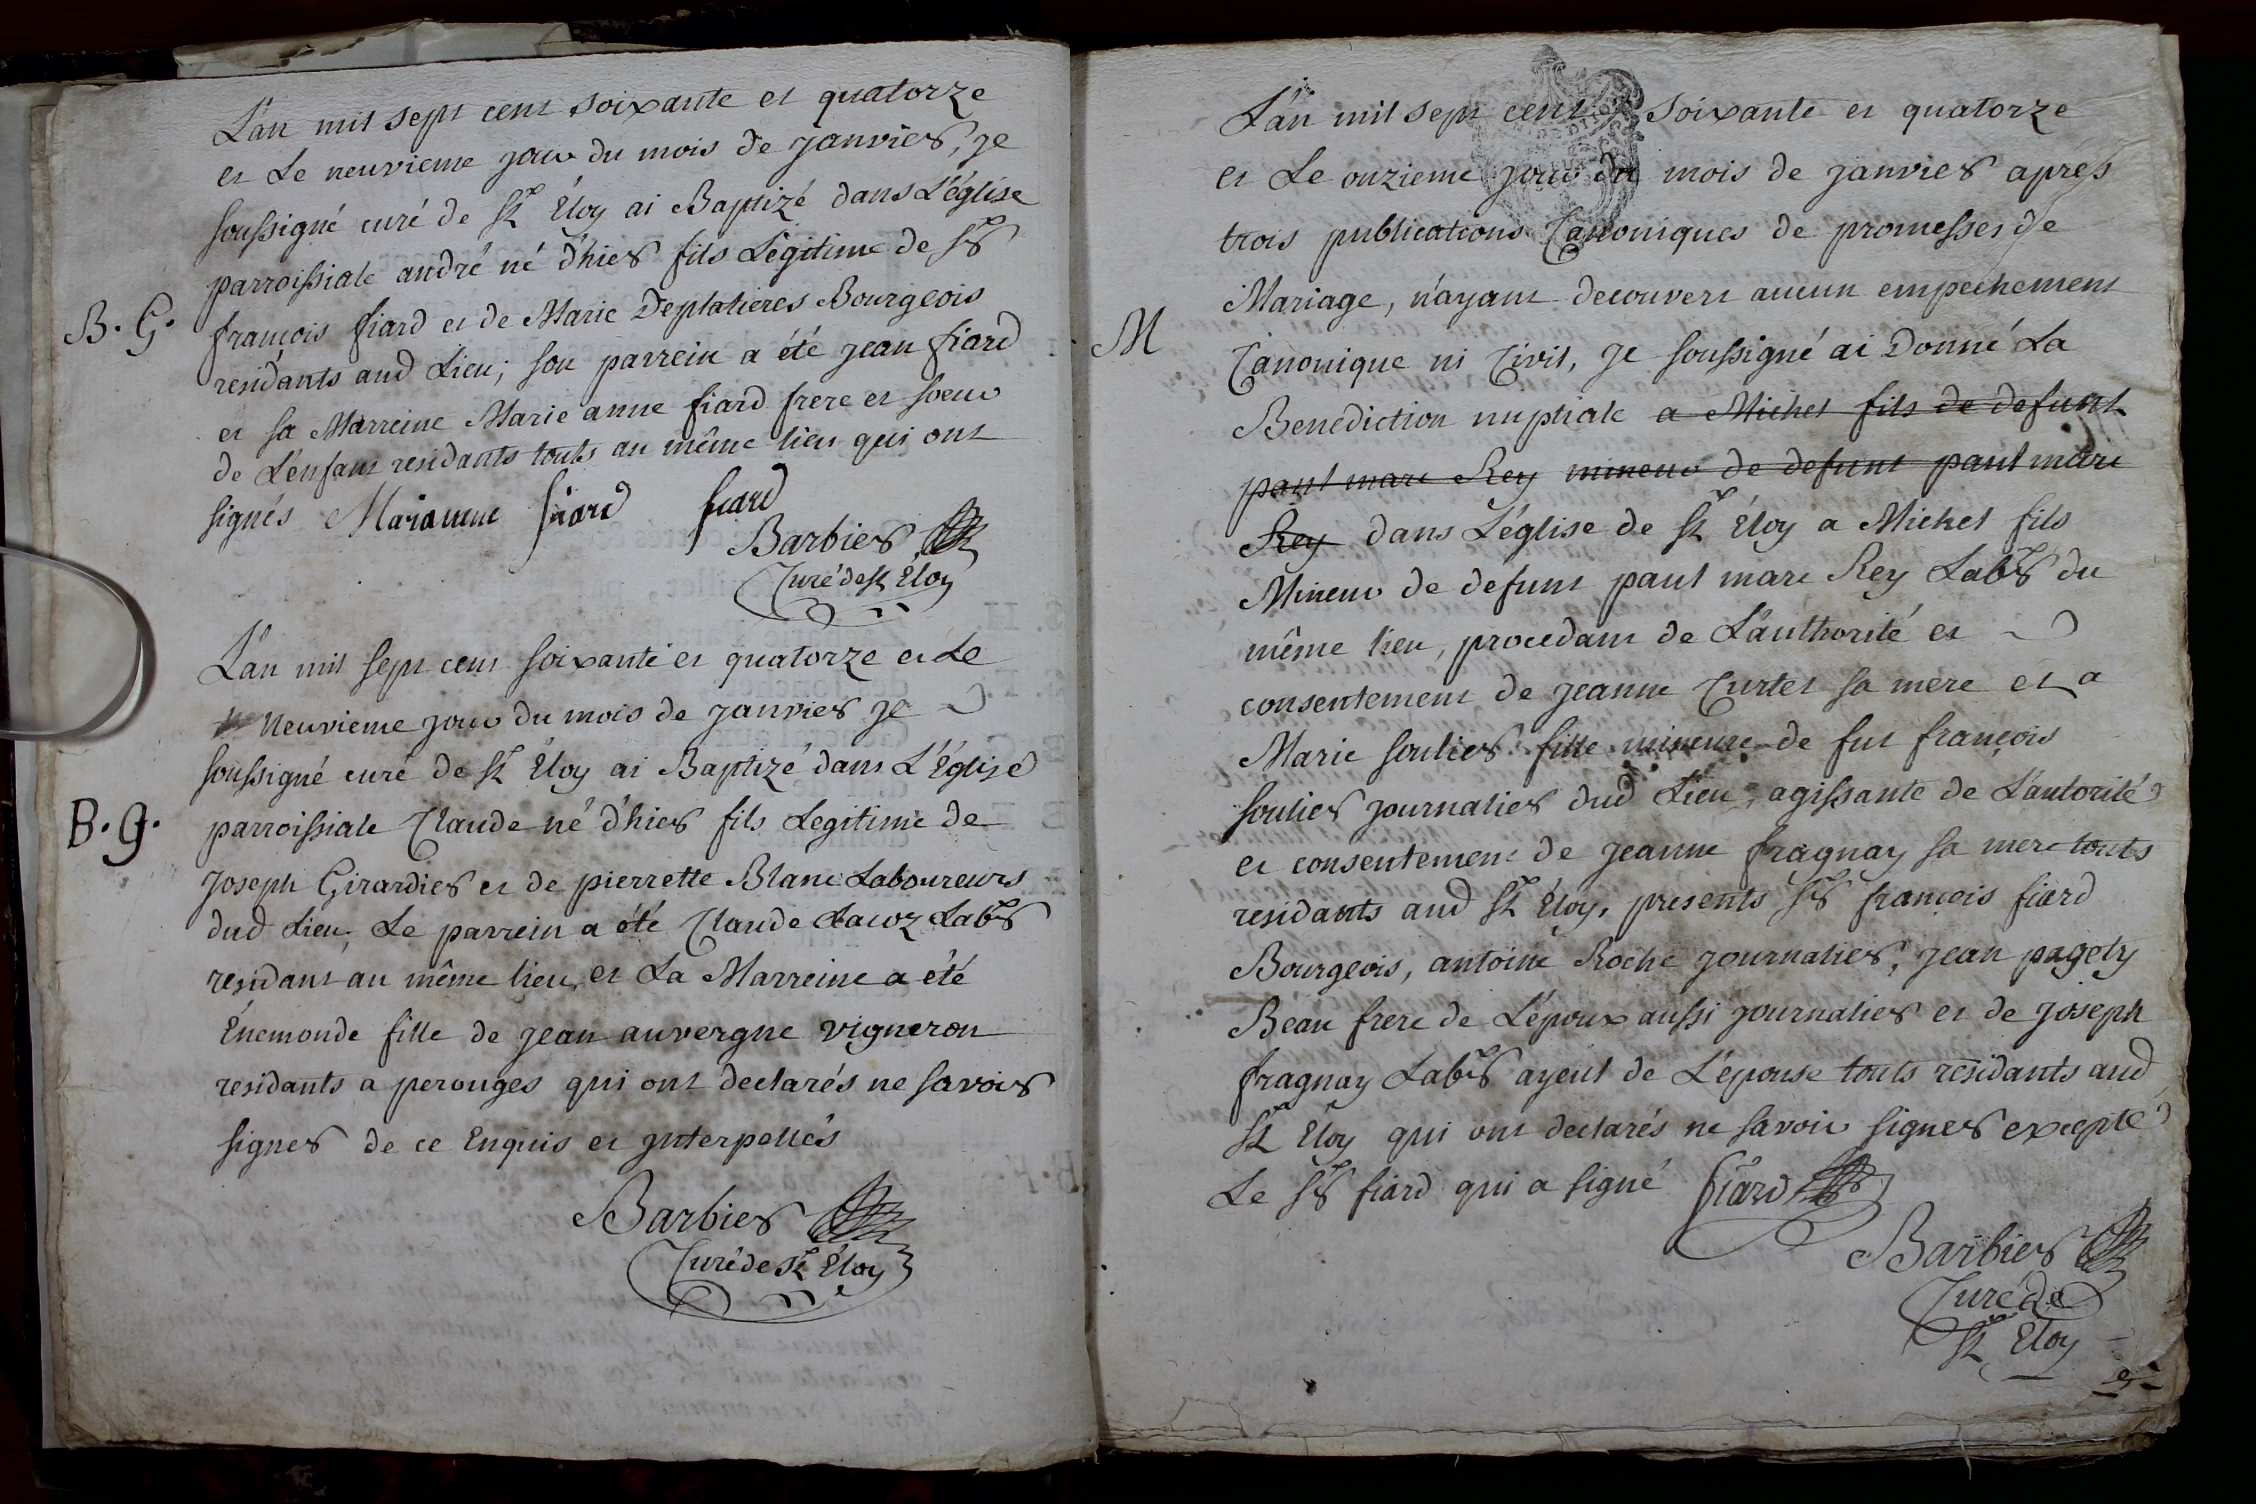 L'an mil sept cent soixante et quatorze
et Le neuvieme jour du mois de janvier, je
soussigné curé de St Éloy ai Baptizé dans L'église
parroissiale andré né d'hier fils Légitime de Sr
B. G. françois fiard et de Marie Deplatieres Bourgeois
residants aud Lieu; son parrein a été jean fiard
et sa Marreine Marie anne fiard frere et soeur
de L'enfant residants touts au même lieu qui ont
signés Marianne fiard fiard
Barbier
Curé de St Éloy
L'an mil sept cent soixante et quatorze et Le
Neuvieme jour du mois de janvier je
soussigné curé de St Éloy ai Baptizé dans L'Église
B. g. parroissiale Claude né d'hier fils Legitime de
Joseph Girardier et de pierrette Blanc Laboureurs
dud Lieu, Le parrein a été Claude Lacoz Labr
residant au même lieu, et La Marreine a été
Énemonde fille de jean auvergne vigneron
residants a perouges qui ont declarés ne savoir
signer de ce Enquis et jnterpellés
Barbier
Curé de St Éloy
L'an mil sept cent soixante et quatorze
et Le onzieme jour du mois de janvier aprés
trois publications Canoniques de promesses de
Mariage, n'ayant decouvert aucun empechement
M Canonique ni Civil, je soussigné ai Donné La
Benediction nuptiale a Michel fils de defunt
paul marc Rey mineur de defunt paul marc
Rey dans L'église de St Éloy a Michel fils
Mineur de defunt paul marc Rey Labr du
même lieu, procedant de L'authorité et
consentement de jeanne Curtet sa mere et a
Marie soulier fille mineure de fut françois
soulier journalier dud Lieu, agissante de L'autorité
et consentement de jeanne fragnay sa mere touts
residants aud St Éloy, presents Sr françois fiard
Bourgeois, antoine Roche journalier, jean pagely
Beau frere de L'époux aussi journalier et de joseph
fragnay Labr ayeul de L'épouse touts residants aud
St Éloy qui ont declarés ne savoir signer excepté
Le Sr fiard qui a signé fiard
Barbier
Curé de
St Éloy